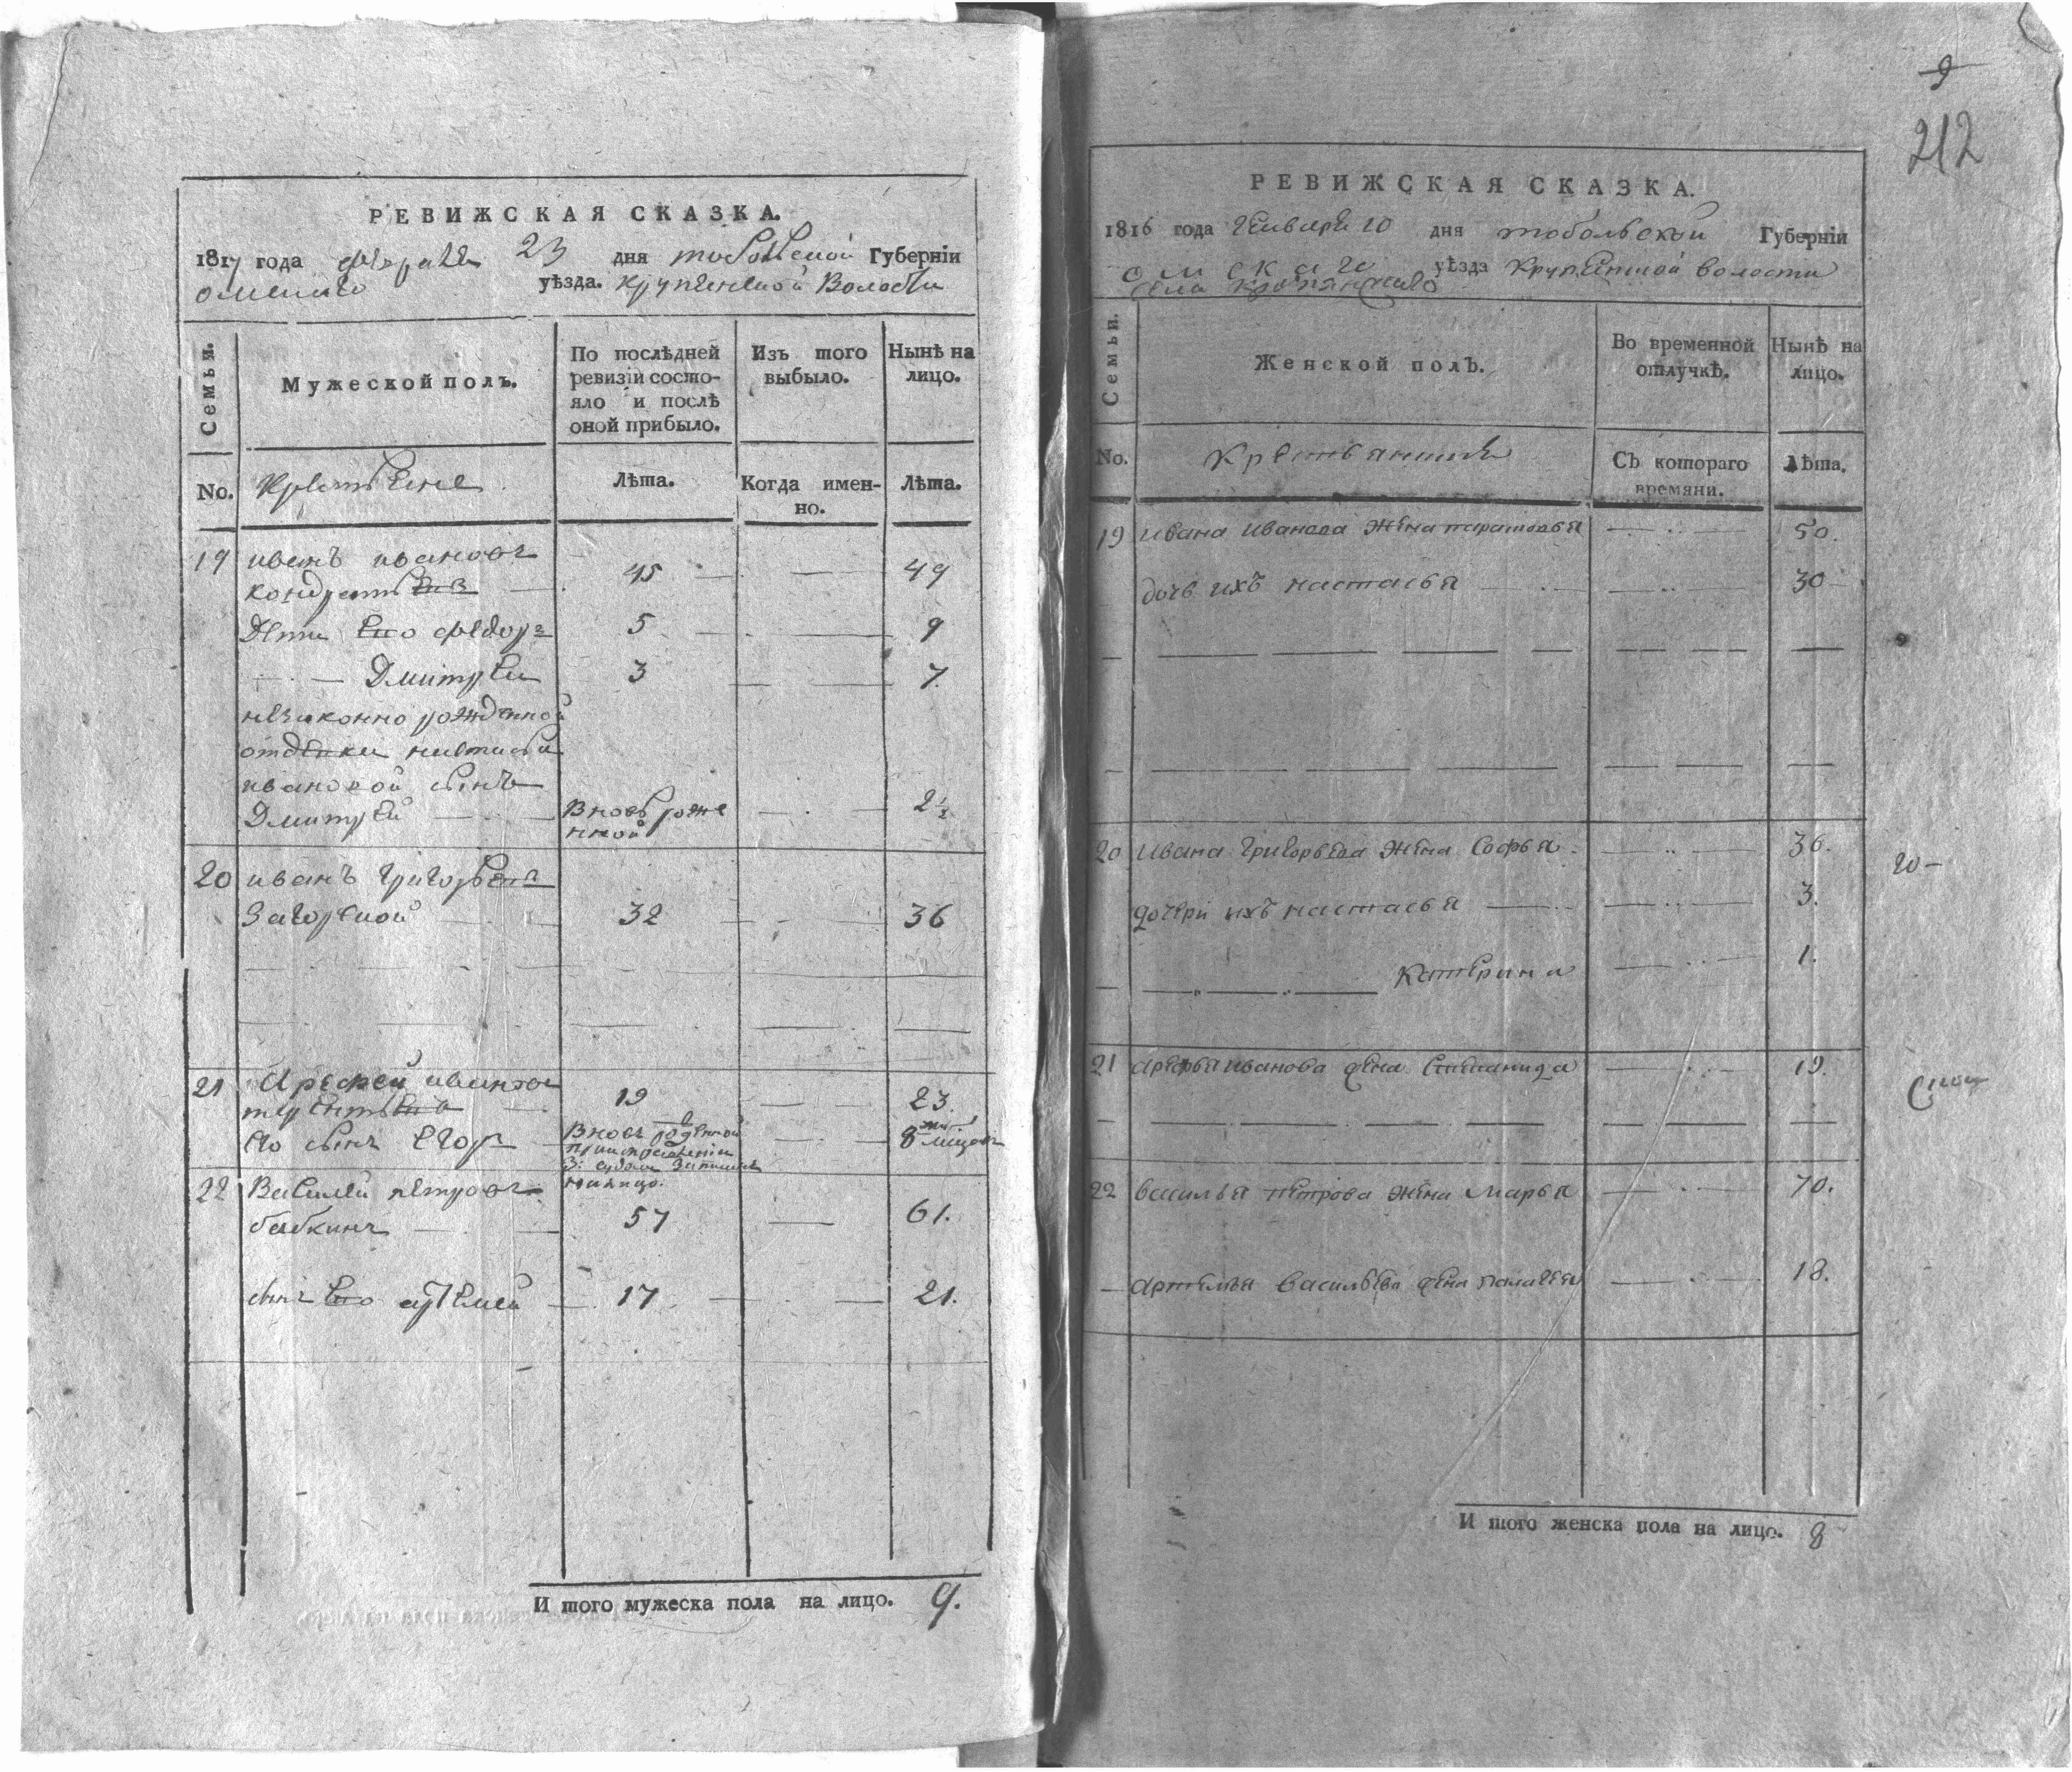 РЕВИЖСКАЯ СКАЗКА.
1817 года февраля 23 дня тобольской Губернїи
омскаго уѣзда. крупенской Волости
Семьи.
Мужеской полъ.
По послѣдней ревизїи состо-
яло и послѣ
оной прибыло.
Изъ того
выбыло.
Нынѣ на
лицо.
No.
Крестьяне
Лѣта.
Когда имен-
но.
Лѣта.
19 иванъ ивановъ
кондратьевъ 45 49
Дети Его федоръ 5 9
Дмитреи 3 7
незаконно рожденной
отдевки настасьи
ивановой сынъ
Дмитрей Вновь рожде
нной 2 1/2
20 иванъ григорьевъ
Загорской 32 36
21 Арефей ивановъ
терентьевъ 19 23.
Его сынъ Егоръ Вновь рожденной 8 мѣцовъ
22 Василеи петровъ
бабкинъ 57 61.
сынъ Его артемей 17 21.
И того мужеска пола на лицо. 9.
9
212
РЕВИЖСКАЯ СКАЗКА.
1816 года Генваря 10 дня тобольской Губернїи
омскаго уѣзда Крупенской волости
села
Семьи.
Женской полъ.
Во временной
отлучкѣ.
Нынѣ на
лицо.
No.
Крестьянския
Съ котораго
времяни.
Лѣта.
19 Ивана Иванова жена 50.
дочь ихъ настасья 30
20 Ивана Григорьева жена Софья 36.
дочери ихъ настасья 3.
Катерина 1.
21 арефья иванова жена Степанида 19.
22 василья петрова жена марья 70.
артемья васильева жена пелагея 18.
И того женска пола на лицо. 8